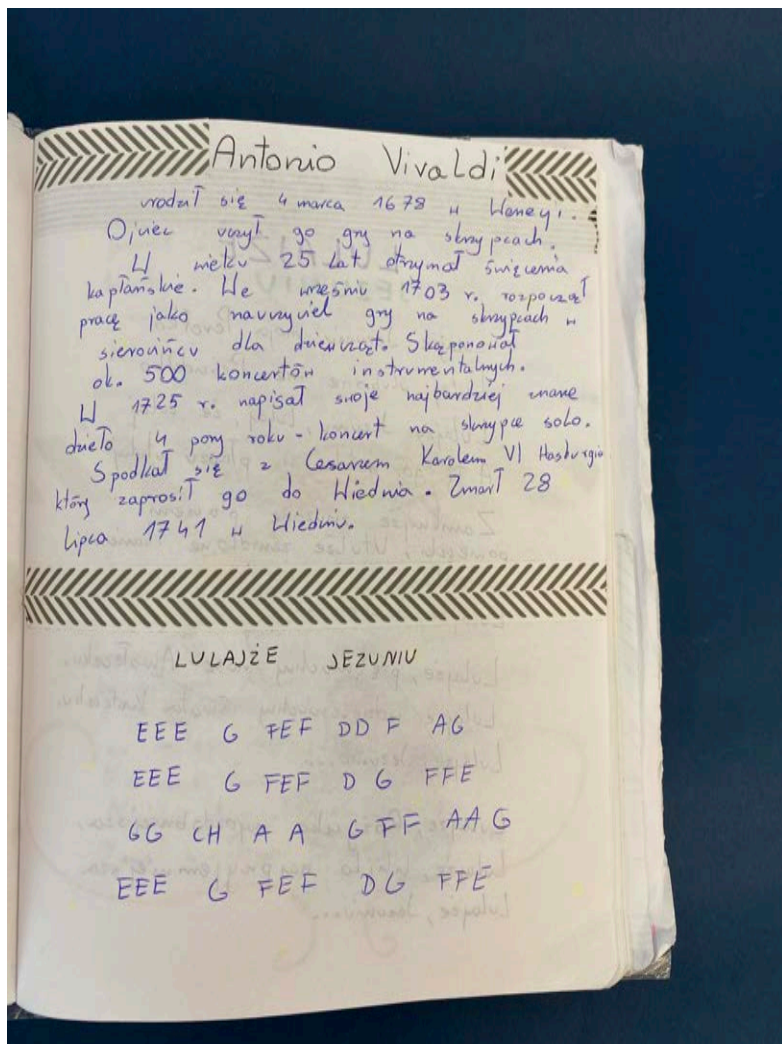 Antonio Vivaldi
urodził się 4 marca 1678 w Wenecji.
Ojciec uczył go gry na skrzypcach.
W wieku 25 lat otrzymał święcenia
kapłańskie. We wrześniu 1703 r. rozpoczął
pracę jako nauczyciel gry na skrzypcach w
sierocińcu dla dziewcząt. Skąponował
ok. 500 koncertów instrumentalnych.
W 1725 r. napisał swoje najbardziej znane
dzieło 4 pory roku - koncert na skrzypce solo.
Spodkał się z Cesarzem Karolem VI
który zaprosił go do Wiednia. Zmarł 28
Lipca 1741 w Wiedniu.
LULAJŻE JEZUNIU
EEE G FEF DD F AG
EEE G FEF D G FFE
GG CH A A G FF AA G
EEE G FEF DG FFE